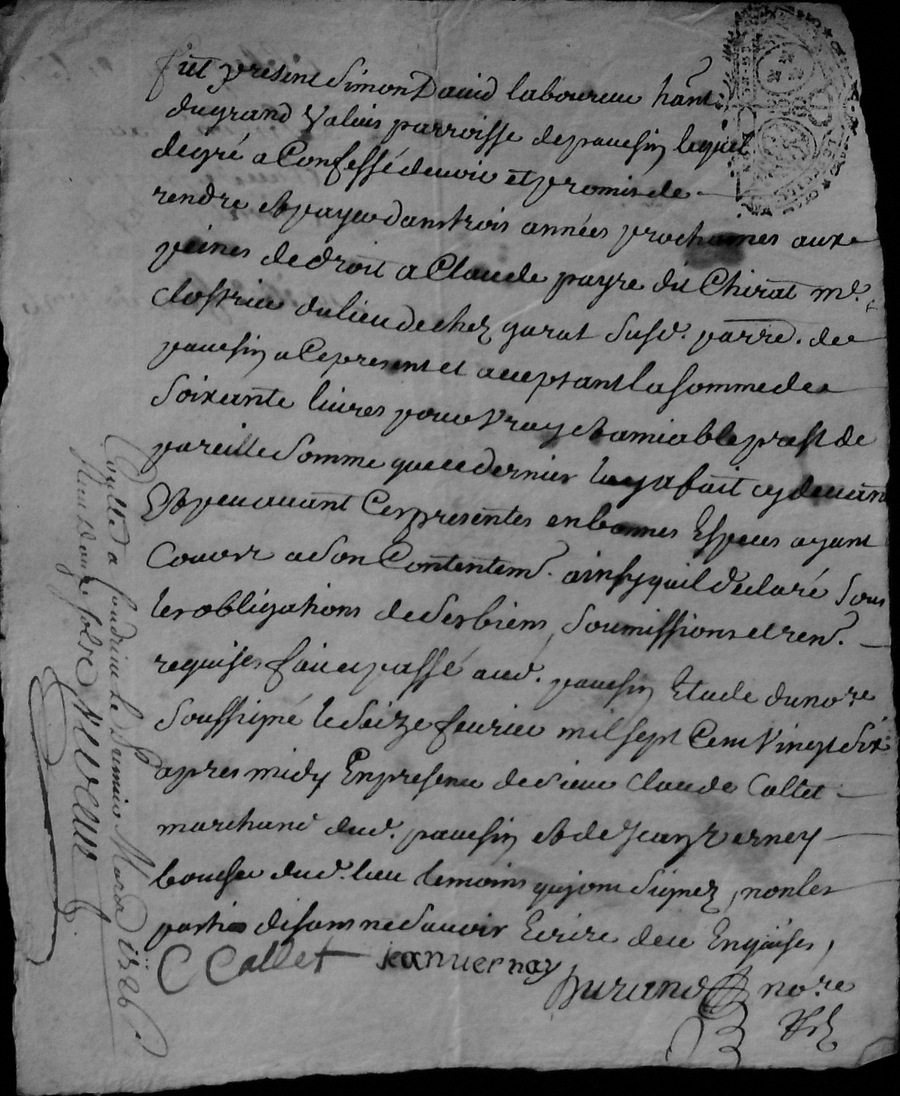 fut present Simon David laboureur hant.
du grand Valais parroisse de pauesin lequel
de gré a Confessé deuoir et promis de
rendre et payer dans trois années prochaines aux
peines de droit a Claude payre dit Chirat md.
du lieu de chez garat susd. parre. de
pauesin a ce present et acceptant la somme de
soixante liures pour vray et amiable prest de
pareille somme que ce dernier luy a fait cy deuant
Et peu auant Ces presentes en bonnes Especes ayant
Cours a son Contentemt. ainsy quil declaré sous
les obligations de ses biens, soumissions et ren.
requises fait et passé aud. pauesin Etude du nore
soussigné le seize feurier mil sept Cent Vingt six
apres midy En presence de sieur Claude Collet
marchand dud. pauesin et de Jean Verney
boucher dud. lieu temoins qui ont signez, non les
parties disant ne sauoir Ecrire de ce Enquises,
C Collet jean uernay
Durand nore
Conllé a le Mars 1726
Receu douze sols